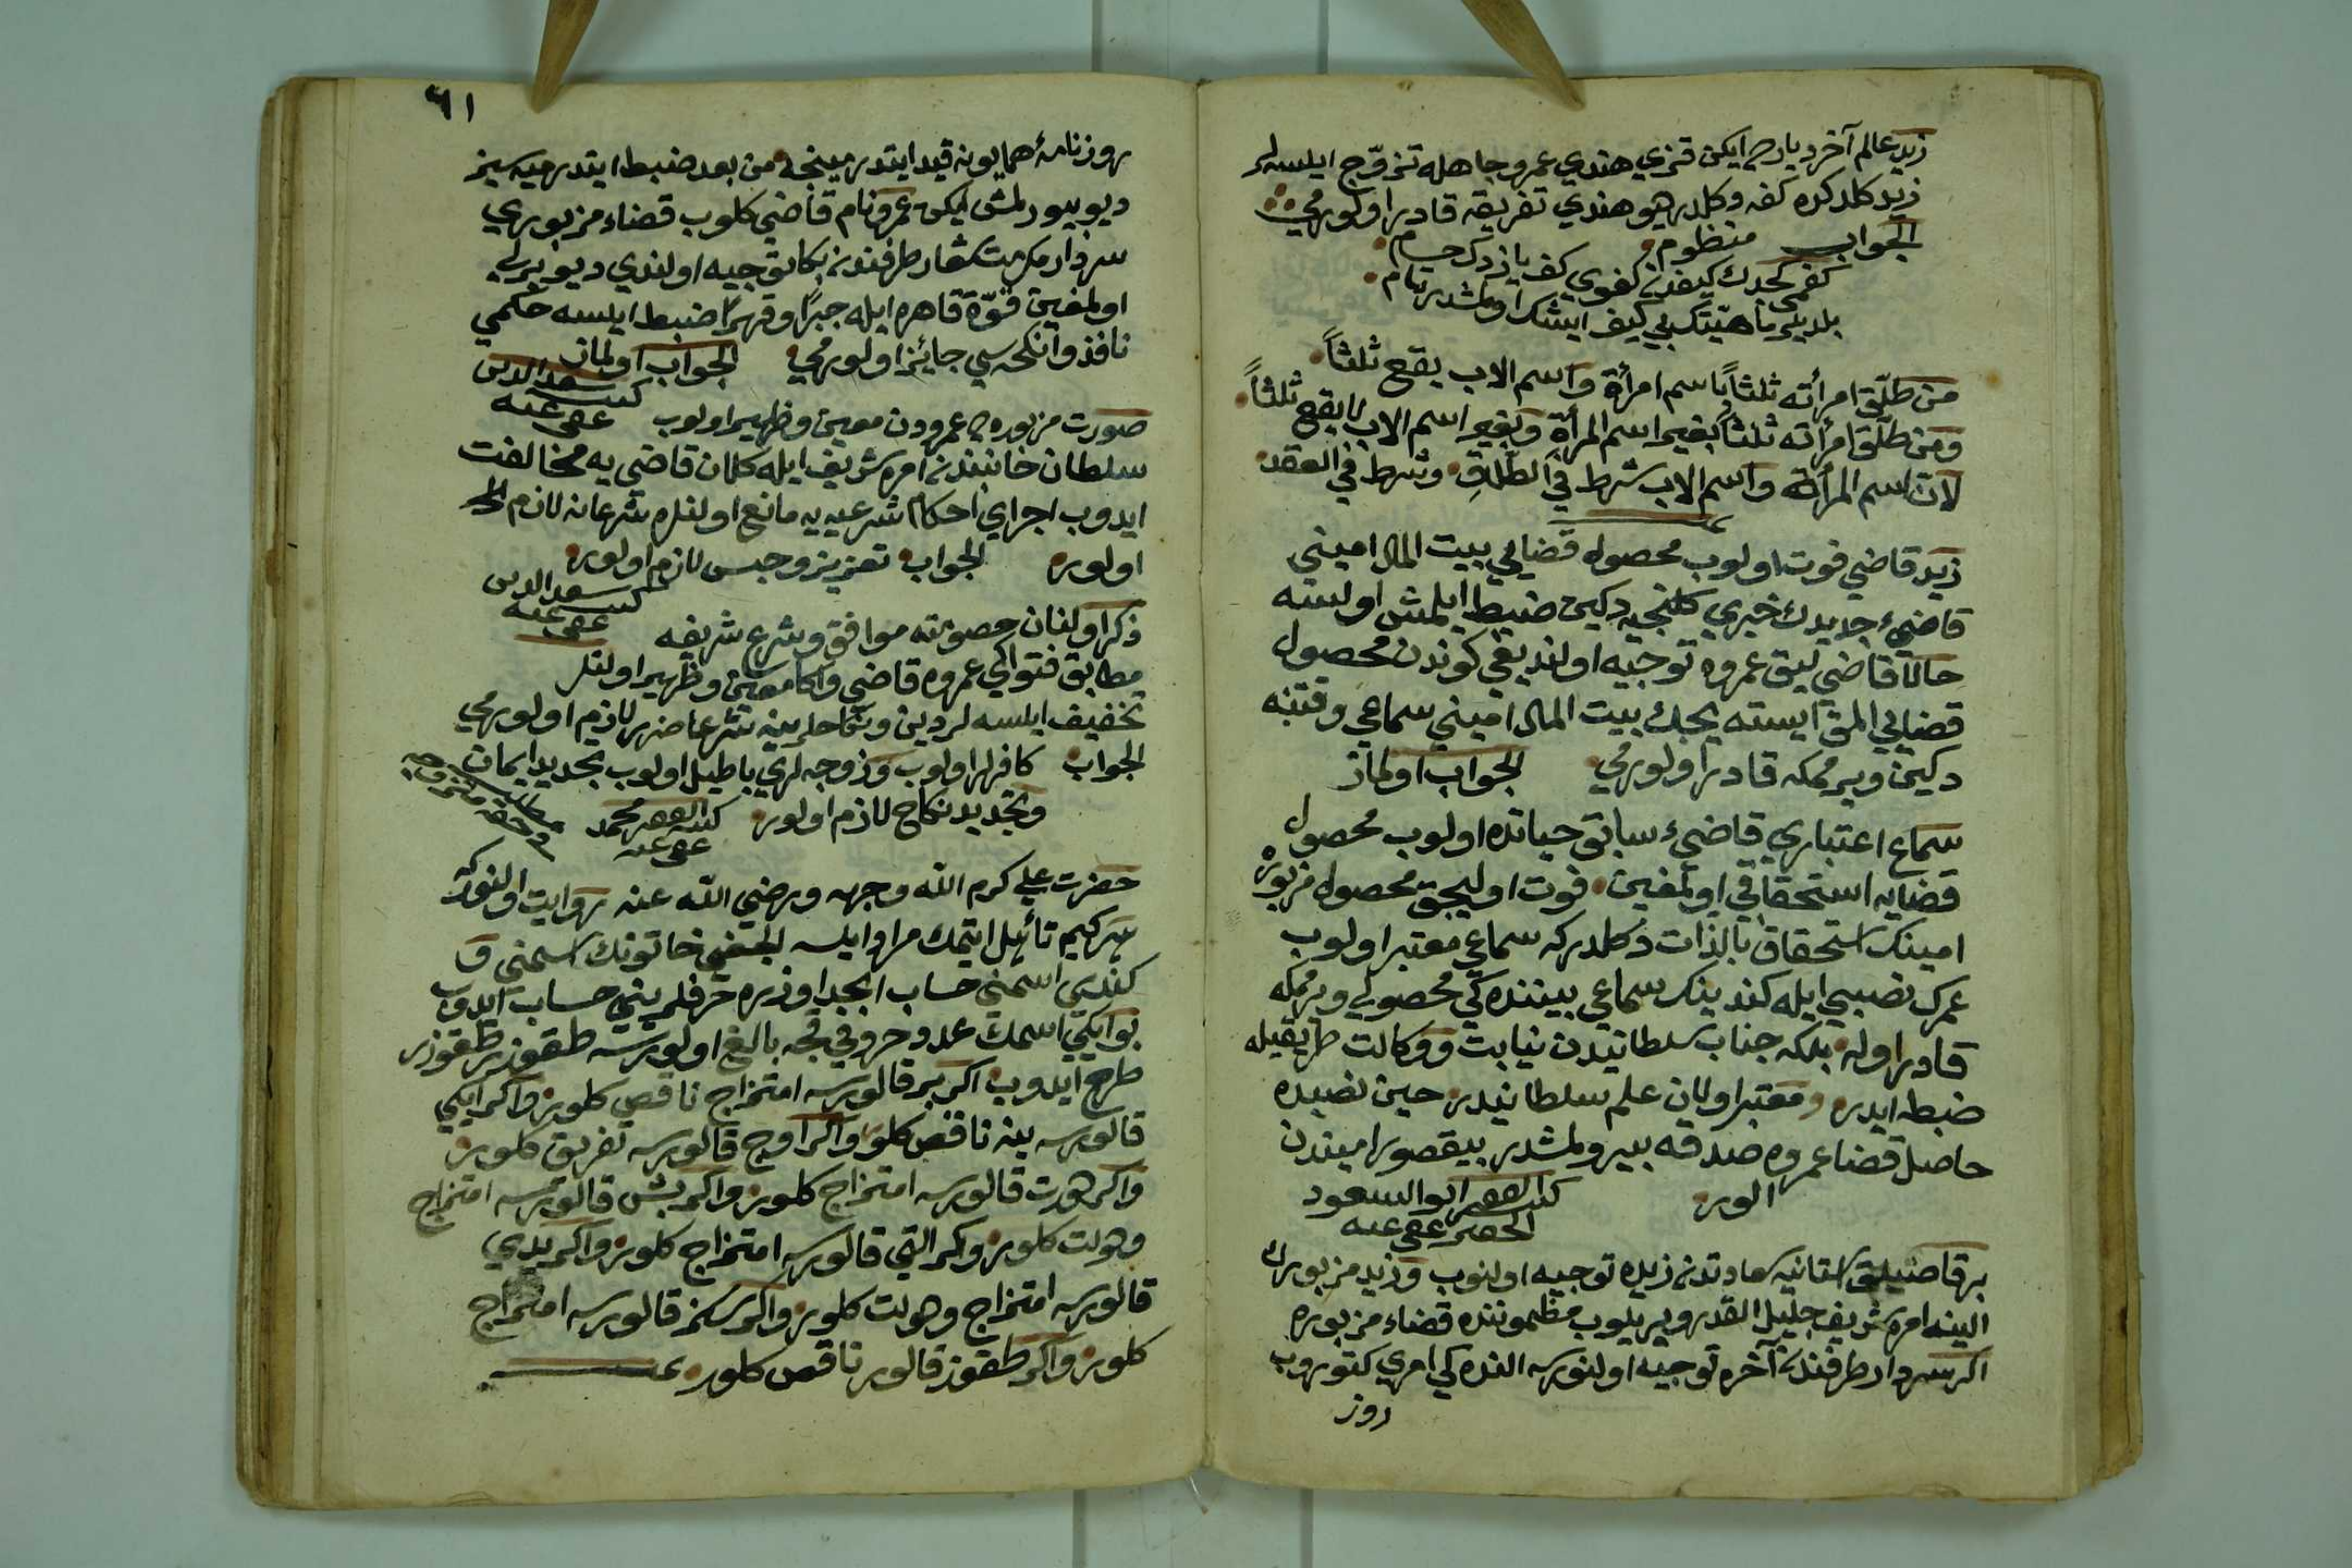 زيد عالم آخر ديارده ايكن قزي هندي عمرو جاهله تزوّج ايلسه لر
زيد كلدكده كفو دكلدر هيو هندي تفريقه قادر اولورمي
الجواب منظوم
كفو
بلديلر ماهيّتك بي كيف ايشك اولمشدر تمام
من طلّق امرأته ثلثاً باسم امرأة واسم الاب يقع ثلثاً
ومن طلّق امرأته ثلثاً بغير اسم المرأة وبغير اسم الاب لا يقع ثلثاً
لان اسم المرأة واسم الاب شرط في الطلاق وشرط في العقد
زيد قاضي فوت اولوب محصول قضايي بيت المال اميني
قاضيء جديدك خبري كلنجيه دكين ضبط ايلمش اولسه
حالا قاضي ليق عمروه توجيه اولنديغي كوندن محصول
قضايي المق ايستيجك بيت المال اميني سماعي وقتنه
دكين ويرممكه قادر اولورمي الجواب اولماز
سماع اعتباري قاضيء سابق حياتده اولوب محصول
قضايه استحقاقي اولمغين فوت اوليجق محصول مزبوره
امينك استحقاق بالذات دكلدر كه سماعي معتبر اولوب
عمرك نصبي ايله كندينك سماعي بيننده كي محصولي ويرممكه
قادر اوله بلكه جناب سلطانيدن نيابت ووكالت طريقيله
ضبط ايدر ومعتبر اولان علم سلطانيدر حين نصبده
حاصل قضا عمروه صدقه بيورلمشدر بيقصور اميندن
الور كتبه الفقير ابو السعود
الحقير عفي عنه
بر قاضيلق استانه سعادتدن زيده توجيه اولنوب وزيد مزبورك
الينه امر شريف جليل القدر ويريلوب مظمونده قضاء مزبوره
اكر سردار طرفندن آخره توجيه اولنورسه الندهكي امري كتوروب
روز
٦١
روزنامهٔ همايونه قيد ايتدرمينجه من بعد ضبط ايتدرميه سيز
ديو بيورلمش ايكن عمرو نام قاضي كلوب قضاء مزبوري
سردار طرفندن بكا توجيه اولندي ديو يرلي
اولمغين قوّة قاهره ايله جبرًا وقهرًا ضبط ايلسه حكمي
نافذ وانكحه سي جائز اولورمي الجواب اولماز
كتبه سعد الدين
عفي عنه
صورت مزبوره ده عمرودن معين وظهير اولوب
سلطان خانبندن امر شريف ايله كلان قاضي يه مخالفت
ايدوب اجراي احكام شرعيه يه مانع اولنلره شرعا نه لازم
اولور الجواب تعزيز وحبس لازم اولور
كتبه سعد الدين
عفي عنه
ذكر اولنان خصوصه موافق وشرع شريفه
مطابق فتواي عمروه قاضي واكا معين وظهير اولنلر
تخفيف ايلسه لر دين ونكاحلرينه شرعا ضرر لازم اولورمي
الجواب كافرلر اولوب وزوجه لري باطيل اولوب تجديد ايمان
وتجديد نكاح لازم اولور كتبه الفقير محمد
عفي عنه
حضرت علي كرم الله وجهه ورضي الله عنه روايت اولنور كه
هر كيم تأهل ايتمك مراد ايلسه خاتونك اسمني و
كندي اسمني حساب ابجد اوزره حرفلريني حساب ايدوب
بو ايكي اسمك عدد حروفي قچه بالغ اولورسه طقوزر طقوزر
طرح ايدوب اكر بر قالورسه امتزاج ناقص كلور واكر ايكي
قالورسه ينه ناقص كلور واكر اوچ قالورسه تفريق كلور
واكر دورت قالورسه امتزاج كلور واكر بش قالورسه امتزاج
وهولت كلور واكر التي قالورسه امتزاج كلور واكر يدي
قالورسه امتزاج وهولت كلور واكر سكز قالورسه امتزاج
كلور واكر طقوز قالور ناقص كلور